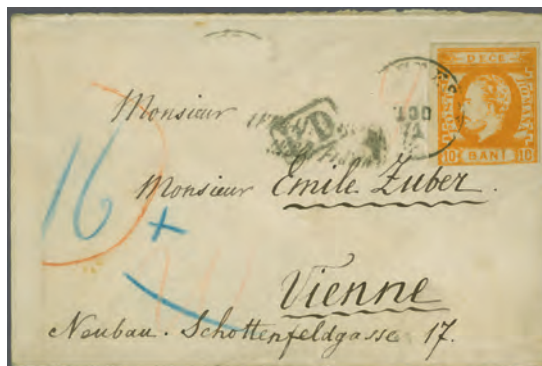 DECE
10 BANI 10
OCT
Monsieur
PD
Monsieur Emile Zuber.
16
+
Vienne
Neubau. Schottenfeldgasse 17.